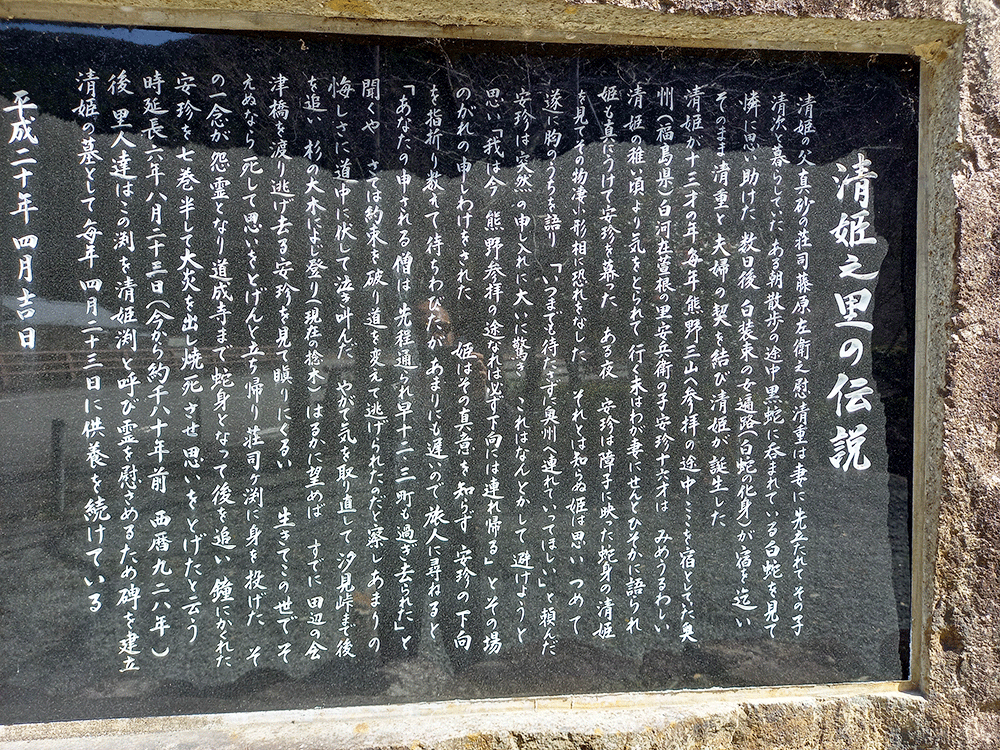 清姫之里の伝説
清姫の父真砂の荘司藤原左衛之慰清重は妻に先立たれてその子
清次と暮らしていた ある朝散歩の途中黒蛇に呑まれている白蛇を見て
憐に思い助けた 数日後 白装束の女遍路(白蛇の化身)が宿を迄い
そのまま清重と夫婦の契を結び清姫が誕生した
清姫が十三才の年毎年熊野三山へ参拝の途中 ここを宿としてた奥
州(福島県)白河在萱根の里安兵衛の子安珍十六才は みめうるわしい
清姫の稚い頃より気をとられて 行く末はわが妻にせんとひそかに語られ
姫も真にうけて安珍を慕った ある夜 安珍は障子に映った蛇身の清姫
を見てその物凄い形相に恐れをなした それとは知らぬ姫は思いつめて
遂に胸のうちを語り 「いつまでも待たずに奥州へ連れていってほしい」と頼んだ
安珍は突然の申し入れに大いに驚き これはなんとかして 避けようと
思い「我は今 熊野参拝の途なれば必ず下向には連れ帰る」とその場
のがれの申しわけをされた 姫はその真意を知らず 安珍の下向
を指折り数えて待ちわびたがあまりにも遅いので 旅人に尋ねると
「あなたの申される僧は 先程通られ早十二、三町も過ぎ去られた」と
聞くや さては約束を破り道を変えて逃げられたのだと察しあまりの
悔しさに道中に伏して泣き叫んだ やがて気を取り直して 汐見峠まで後
を追い 杉の大木によじ登り(現在の捻木)はるかに望めば すでに田辺の会
津橋を渡り逃げ去る安珍を見て瞋りにくるい 生きてこの世でそ
えぬなら 死して思いをとげんと立ち帰り荘司ヶ渕に身を投げた そ
の一念が 怨霊となり道成寺まで蛇身となって後を追い 鐘にかくれた
安珍を七巻半して大炎を出し焼死させ思いをとげたと云う
時延長六年八月二十三日(今から約千八十年前 西暦九二八年)
後 里人達はこの渕を清姫渕と呼び霊を慰さめるため碑を建立
清姫の墓として毎年 四月二十三日に供養を続けている
平成二十年四月吉日